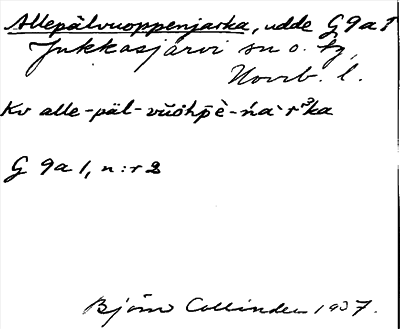 Allepälvuoppenjarka, udde G 9a 1
Jukkasjärvi sn o. tg,
Norrb. l.
Kv alle-päl-vŭŏhp̄è-ńàrᵊka
G 9a 1, n:r 2
Björn Collinder 1937.